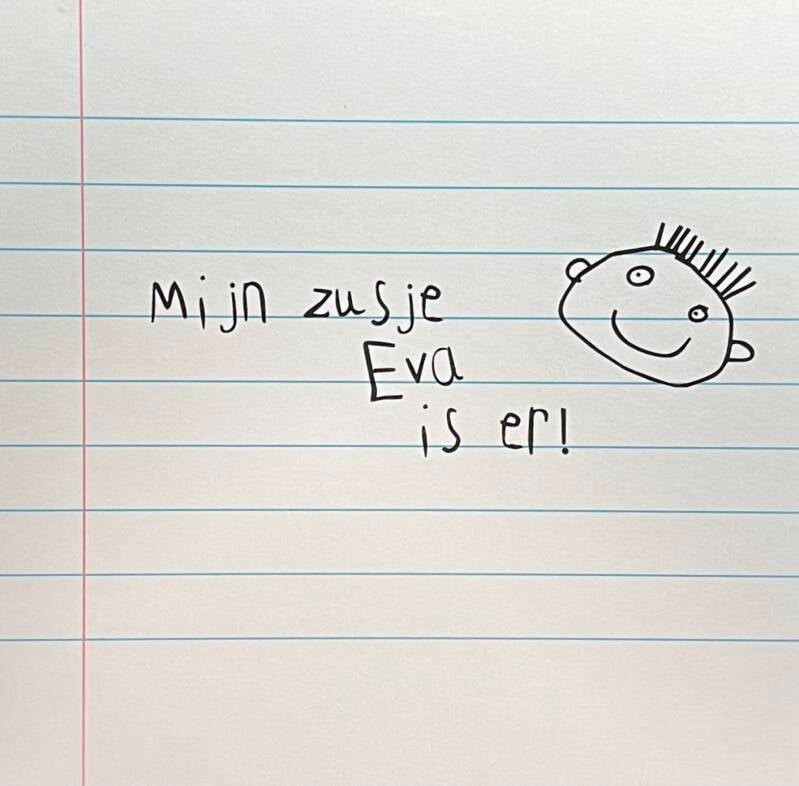 Mijn zusje
Eva
is er!